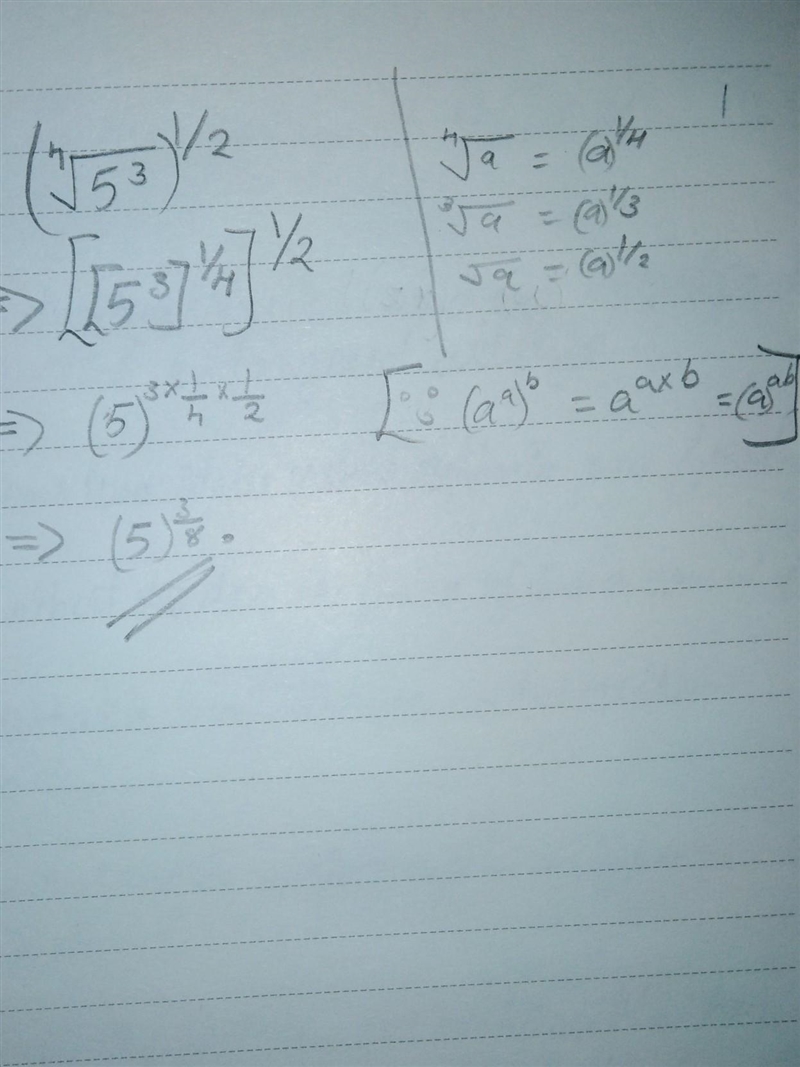 (∜5³)^1/2
=> [[5³]^1/4]^1/2
=> (5)^3×1/4×1/2
=> (5)^3/8.
∜a = (a)^1/4
∛a = (a)^1/3
√a = (a)^1/2
[∵ (a^a)^b = a^a×b = (a)^ab]